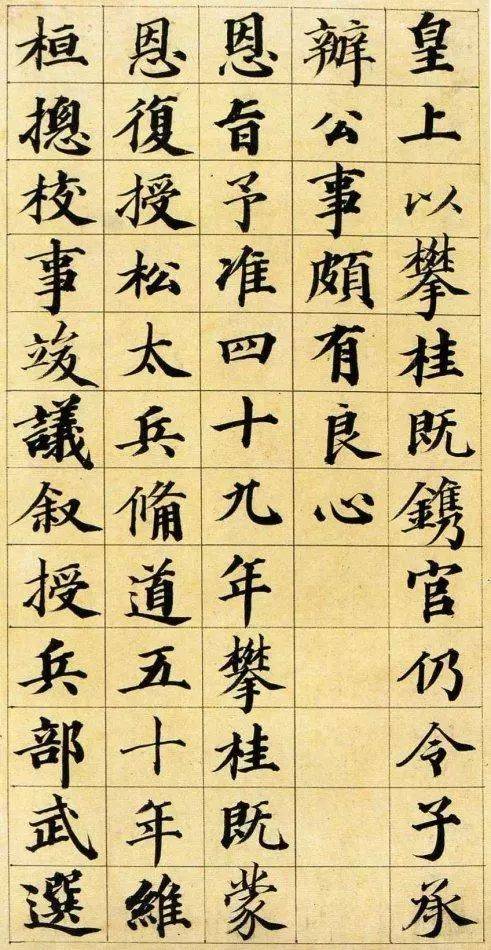 皇上以攀桂既鐫官仍令子承
辦公事頗有良心
恩旨予准四十九年攀桂既蒙
恩復授松太兵俻道五十年維
桓摠校事竣議叙授兵部武選